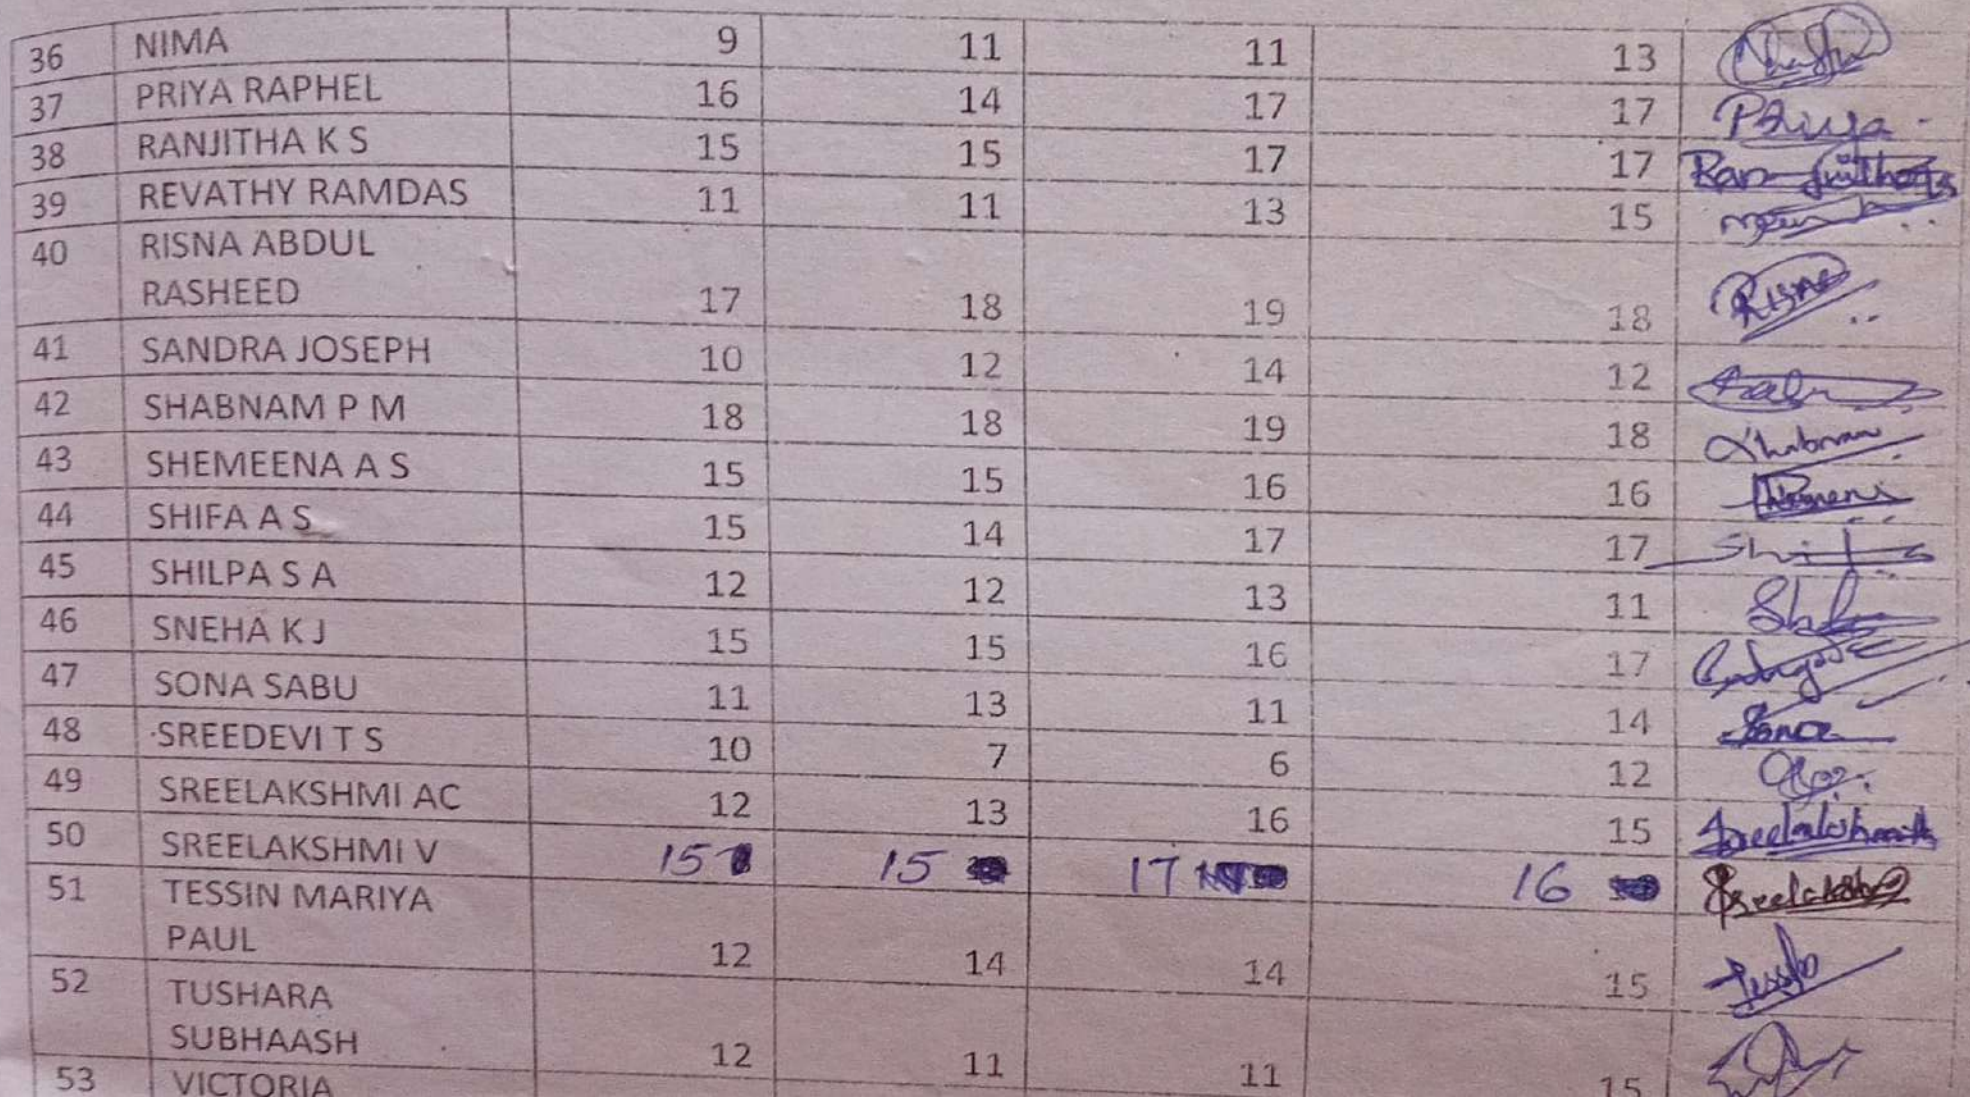 36 NIMA 9 11 11 13
37 PRIYA RAPHEL 16 14 17 17 Priya
38 RANJITHA K S 15 15 17 17 Ranjitha
39 REVATHY RAMDAS 11 11 13 15
40 RISNA ABDUL
RASHEED 17 18 19 18 Risna
41 SANDRA JOSEPH 10 12 14 12
42 SHABNAM P M 18 18 19 18 Shabnam
43 SHEMEENA A S 15 15 16 16
44 SHIFA A S 15 14 17 17 Shifa
45 SHILPA S A 12 12 13 11
46 SNEHA K J 15 15 16 17
47 SONA SABU 11 13 11 14 Sona
48 SREEDEVI T S 10 7 6 12
49 SREELAKSHMI AC 12 13 16 15 Sreelakshmi
50 SREELAKSHMI V 15 15 17 16
51 TESSIN MARIYA
PAUL 12 14 14 15
52 TUSHARA
SUBHAASH 12 11 11 15
53 VICTORIA